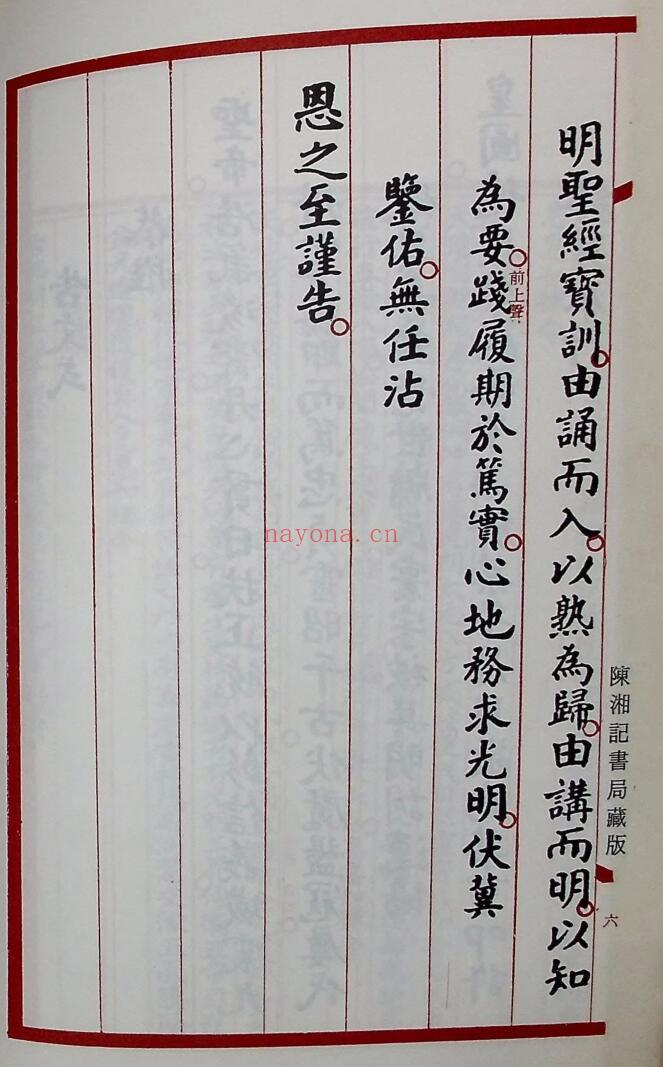 明聖經寶訓。由誦而入。以熟為歸。由講而明。以知
為要。踐履期於篤實。心地務求光明。伏冀
前上聲
鑒佑。無任沾
恩之至謹告。
陳湘記書局藏版
六
nayona.cn